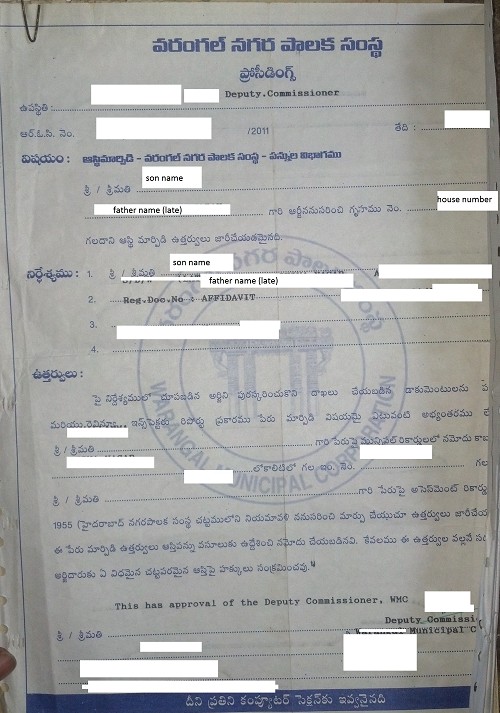 వరంగల్ నగర పాలక సంస్థ
ప్రోసీడింగ్స్
Deputy.Commissioner
ఉపస్థితి :
ఆర్.ఓ.సి. నెం. /2011 తేది :
విషయం : ఆస్తిమార్పిడి - వరంగల్ నగర పాలక సంస్థ - పన్నుల విభాగము
son name
శ్రీ / శ్రీమతి
father name (late) గారి అర్జీననుసరించి గృహము నెం. house number
గలదాని ఆస్థి మార్పిడి ఉత్తర్వులు జారీచేయడమైనది.
నిర్దేశ్యము : 1. శ్రీ / శ్రీమతి son name
father name (late)
2. Reg.Doc.No : AFFIDAVIT
3.
4.
ఉత్తర్వులు :
పై నిర్దేశ్యములో చూపబడిన అర్జిని పురస్కరించుకొని దాఖలు చేయబడిన డాకుమెంటులను
మరియు రెవిన్యూ ఇన్స్‌పెక్టరు రిపోర్టు ప్రకారము పేరు మార్పిడి విషయమై ఎటువంటి అభ్యంతరము
శ్రీ / శ్రీమతి గారి పేరుపై మున్సిపల్ రికార్డులలో నమోదు
లోకాలిటిలో గల ఇం. నెం. గల
శ్రీ / శ్రీమతి గారి పేరుపై అసెస్‌మెంట్ రికార్డు
1955 (హైదరాబాద్ నగరపాలక సంస్థ చట్టములోని నియమావళి ననుసరించి మార్పు చేయుచూ ఉత్తర్వులు జారీచేయ
ఈ పేరు మార్పిడి ఉత్తర్వులు ఆస్తిపన్ను వసూలుకు ఉద్దేశించి నమోదు చేయబడినవి. కేవలము ఈ ఉత్తర్వుల వల్లనే
అర్జిదారుకు ఏ విధమైన చట్టపరమైన ఆస్తిపై హక్కులు సంక్రమించవు."
This has approval of the Deputy Commissioner, WMC
Deputy Commissi
శ్రీ / శ్రీమతి Municipal C
దీని ప్రతిని కంప్యూటర్ సెక్షన్‌కు ఇవ్వనైనది
WARANGAL MUNICIPAL CORPORATION